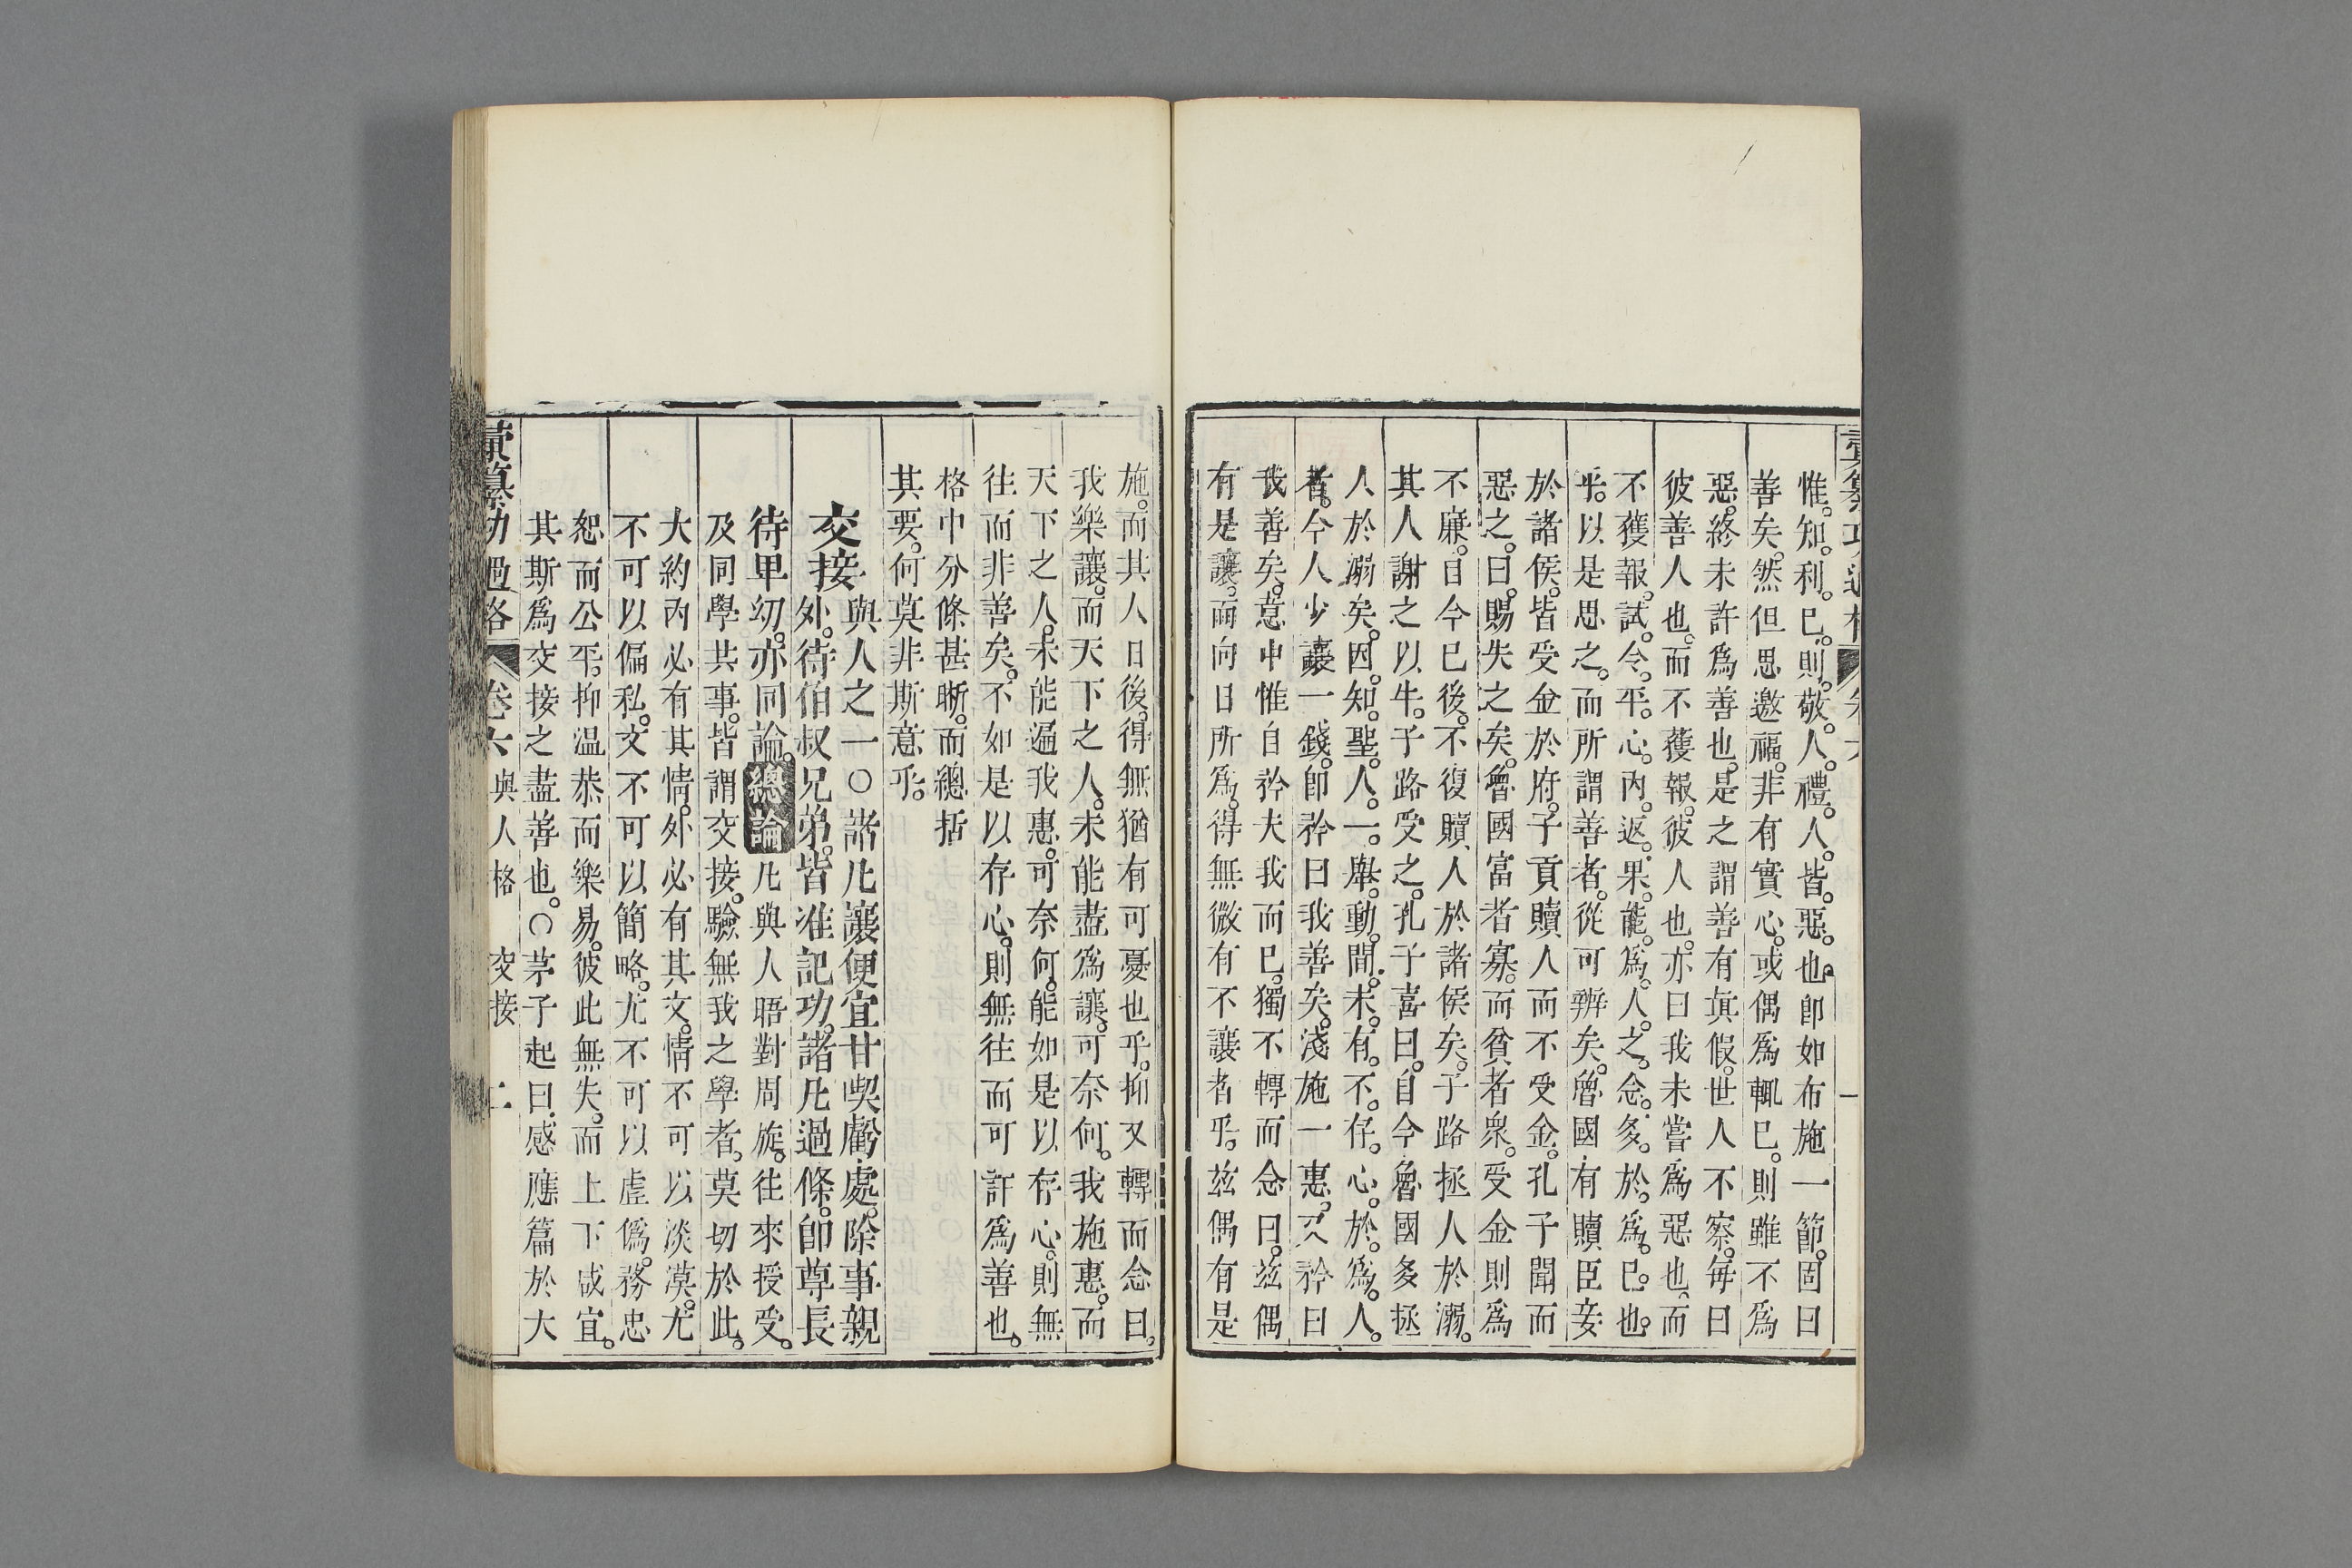 彙纂功過格 卷六
惟知利巳則敬人禮人皆惡也卽如布施一節固曰
善矣然但思邀福非有實心或偶爲輒巳則雖不爲
惡終未許爲善也是之謂善有眞假世人不察每曰
彼善人也而不獲報彼人也亦曰我未嘗爲惡也而
不獲報試令平心內返果能爲人之念多於爲巳也
乎以是思之而所謂善者從可辨矣魯國有贖臣妾
於諸侯皆受金於府子貢贖人而不受金孔子聞而
惡之曰賜失之矣魯國富者寡而貧者衆受金則爲
不廉自今巳後不復贖人於諸侯矣子路拯人於溺
其人謝之以牛子路受之孔子喜曰自今魯國多拯
人於溺矣因知聖人一舉動間未有不存心於爲人
者今人少讓一錢卽矜曰我善矣淺施一惠又矜曰
我善矣意中惟自矜夫我而巳獨不轉而念曰玆偶
有是讓而向日所爲得無微有不讓者乎玆偶有是
施而其人日後得無猶有可憂也乎抑又轉而念曰
我樂讓而天下之人未能盡爲讓可奈何我施惠而
天下之人未能遍我惠可奈何能如是以存心則無
往而非善矣不如是以存心則無往而可許爲善也
格中分條甚晰而總括
其要何莫非斯意乎
交接 與人之一○諸凡讓便宜甘喫虧處除事親
外待伯叔兄弟皆准記功諸凡過條卽尊長
待卑幼亦同論 總論 凡與人晤對周旋往來授受
及同學共事皆謂交接驗無我之學者莫切於此
大約內必有其情外必有其文情不可以淡漠尤
不可以偏私文不可以簡略尤不可以虛僞務忠
恕而公平抑温恭而樂易彼此無失而上下咸宜
其斯爲交接之盡善也○茅子起曰感應篇於大
彙纂功過格 卷六 與人格 交接 二